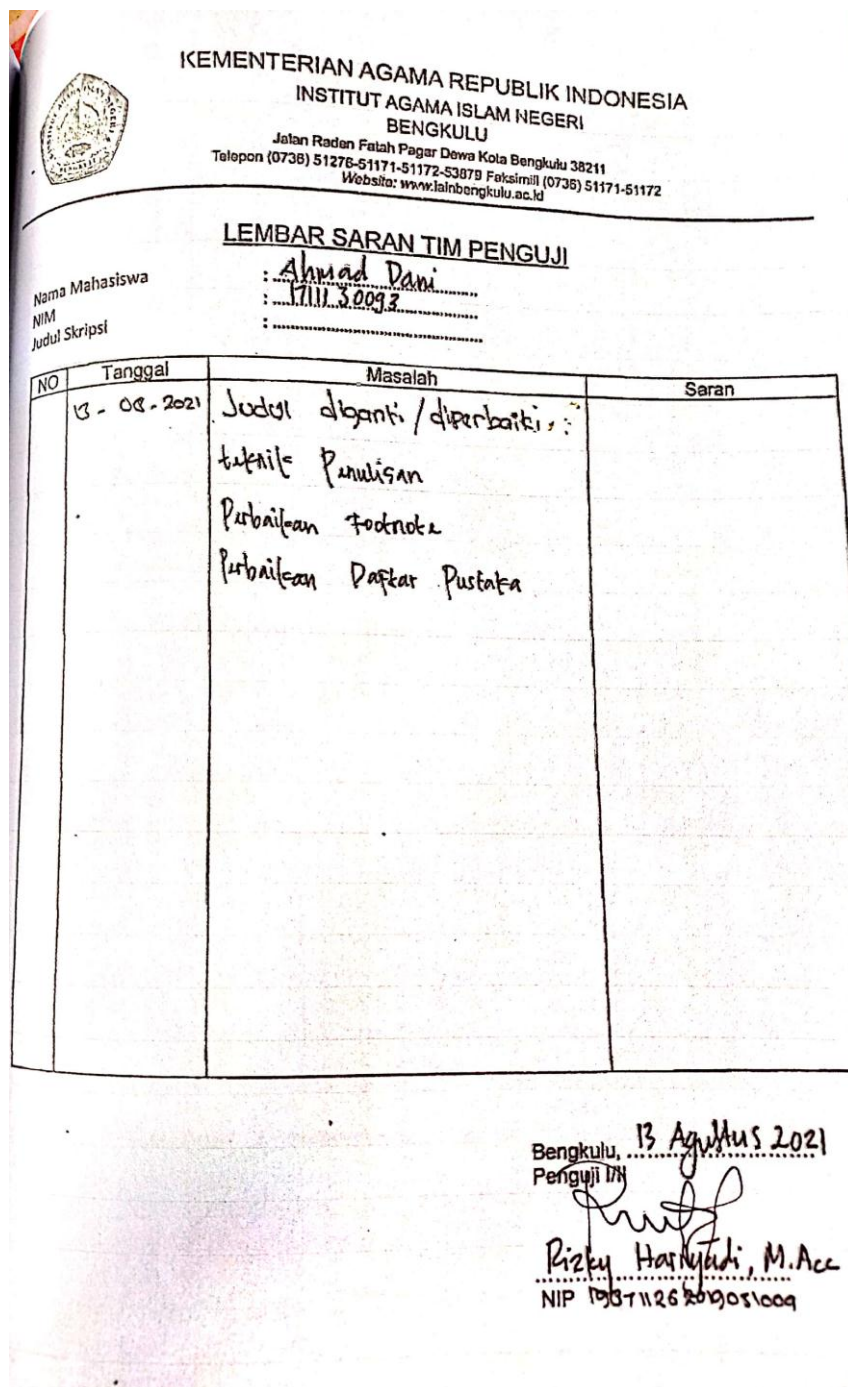 KEMENTERIAN AGAMA REPUBLIK INDONESIA
INSTITUT AGAMA ISLAM NEGERI
BENGKULU
Jalan Raden Fatah Pagar Dewa Kota Bengkulu 38211
Telepon (0736) 51276-51171-51172-53879 Faksimili (0736) 51171-51172
Website: www.iainbengkulu.ac.id
LEMBAR SARAN TIM PENGUJI
Nama Mahasiswa : Ahmad Dani
NIM : 1711130093
Judul Skripsi :
NO Tanggal Masalah Saran
13 - 08 - 2021 Judul diganti / diperbaiki
teknik Penulisan
Perbaikan Footnote
Perbaikan Daftar Pustaka
Bengkulu, 13 Agustus 2021
Penguji I/II
Rizky Hariyadi, M.Acc
NIP 198711262019031009